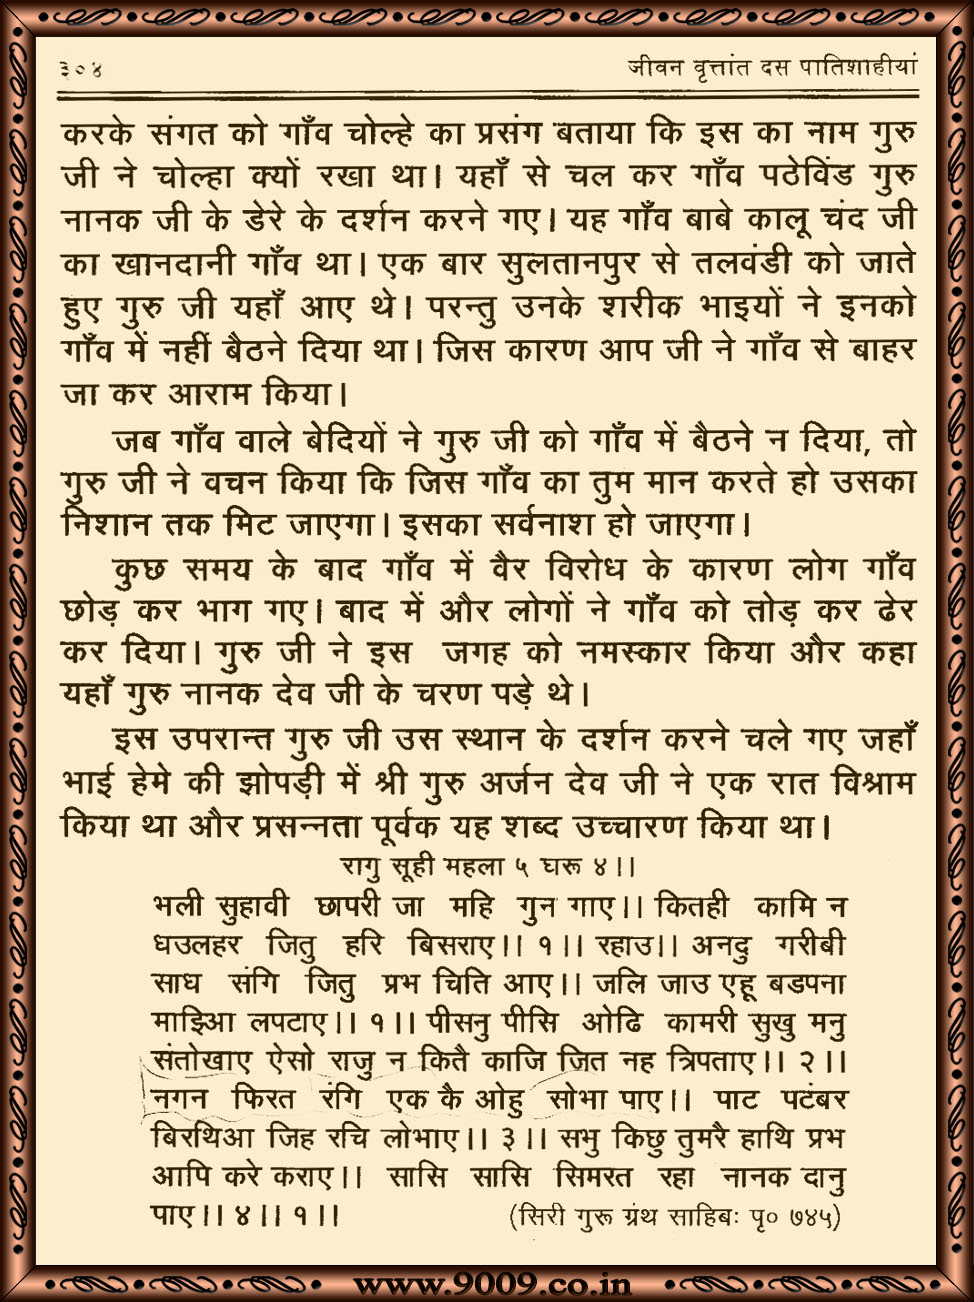 ३०४ जीवन वृत्तांत दस पातिशाहीयां
करके संगत को गाँव चोल्हे का प्रसंग बताया कि इस का नाम गुरु
जी ने चोल्हा क्यों रखा था। यहाँ से चल कर गाँव पठेविंड गुरु
नानक जी के डेरे के दर्शन करने गए। यह गाँव बाबे कालू चंद जी
का खानदानी गाँव था। एक बार सुलतानपुर से तलवंडी को जाते
हुए गुरु जी यहाँ आए थे। परन्तु उनके शरीक भाइयों ने इनको
गाँव में नहीं बैठने दिया था। जिस कारण आप जी ने गाँव से बाहर
जा कर आराम किया।
जब गाँव वाले बेदियों ने गुरु जी को गाँव में बैठने न दिया, तो
गुरु जी ने वचन किया कि जिस गाँव का तुम मान करते हो उसका
निशान तक मिट जाएगा। इसका सर्वनाश हो जाएगा।
कुछ समय के बाद गाँव में वैर विरोध के कारण लोग गाँव
छोड़ कर भाग गए। बाद में और लोगों ने गाँव को तोड़ कर ढेर
कर दिया। गुरु जी ने इस जगह को नमस्कार किया और कहा
यहाँ गुरु नानक देव जी के चरण पड़े थे।
इस उपरान्त गुरु जी उस स्थान के दर्शन करने चले गए जहाँ
भाई हेमे की झोपड़ी में श्री गुरु अर्जन देव जी ने एक रात विश्राम
किया था और प्रसन्नता पूर्वक यह शब्द उच्चारण किया था।
रागु सूही महला ५ घरू ४।।
भली सुहावी छापरी जा महि गुन गाए।। कितही कामि न
धउलहर जितु हरि बिसराए।। १।। रहाउ।। अनदु गरीबी
साध संगि जितु प्रभ चिति आए।। जलि जाउ एहू बडपना
माझिआ लपटाए।। १।। पीसनु पीसि ओढि कामरी सुखु मनु
संतोखाए ऐसो राजु न कितै काजि जित नह त्रिपताए।। २।।
नगन फिरत रंगि एक कै ओहु सोभा पाए।। पाट पटंबर
बिरथिआ जिह रचि लोभाए।। ३।। सभु किछु तुमरै हाथि प्रभ
आपि करे कराए।। सासि सासि सिमरत रहा नानक दानु
पाए।। ४।। १।। (सिरी गुरू ग्रंथ साहिबः पृ० ७४५)
www.9009.co.in